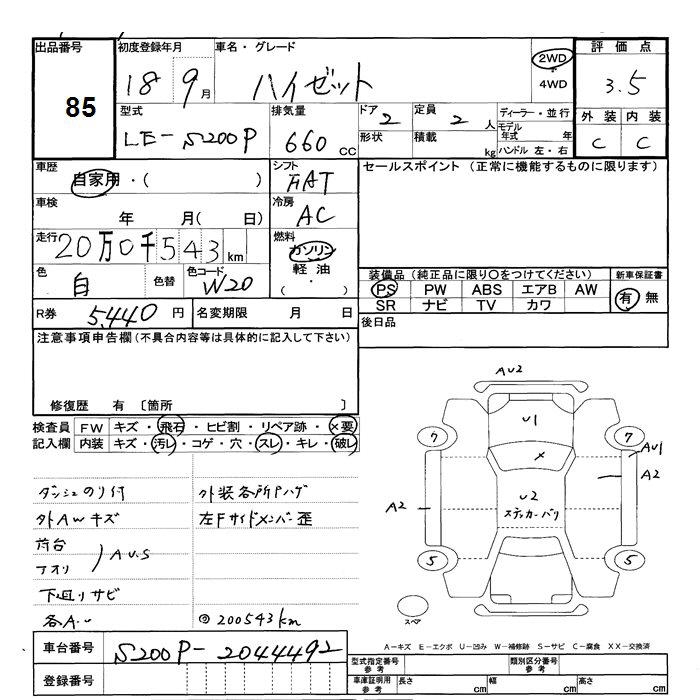 出品番号 初度登録年月 車名・グレード 2WD・4WD 評価点
85 18 9月 ハイゼット 3.5
型式 排気量 ドア 定員 ディーラー・並行 外装 内装
LE-S200P 660cc 2 2人 モデル年式 年 C C
形状 積載 kg ハンドル 左・右
車歴 シフト セールスポイント (正常に機能するものに限ります)
自家用・( ) FAT
車検 冷房
年 月( 日) AC
走行 燃料
20万0千543km ガソリン
色 色替 色コード 軽油 装備品(純正品に限り○をつけてください) 新車保証書
白 W20 ・( ) PS PW ABS エアB AW 有 無
SR ナビ TV カワ
R券 5,440円 名変期限 月 日 後日品
注意事項申告欄(不具合内容等は具体的に記入して下さい)
修復歴 有 〔箇所 〕
検査員 FW キズ・飛石・ヒビ割・リペア跡・×要
記入欄 内装 キズ・汚レ・コゲ・穴・スレ・キレ・破レ
ダッシュのり付 外装各所Pハゲ
外AWキズ 左Fサイドメンバー歪
荷台
アオリ AU.S
下廻りサビ
各A.U ◎200543km
AU2
U1
7 7
× AU1
A2
A2 U2
ステッカーバリ
5 5
スペア
A-キズ E-エクボ U-凹み W-補修跡 S-サビ C-腐食 XX-交換済
車台番号 S200P-2044492
登録番号
型式指定番号 参考 類別区分番号 参考
車庫証明用 参考 長さ cm 幅 cm 高さ cm